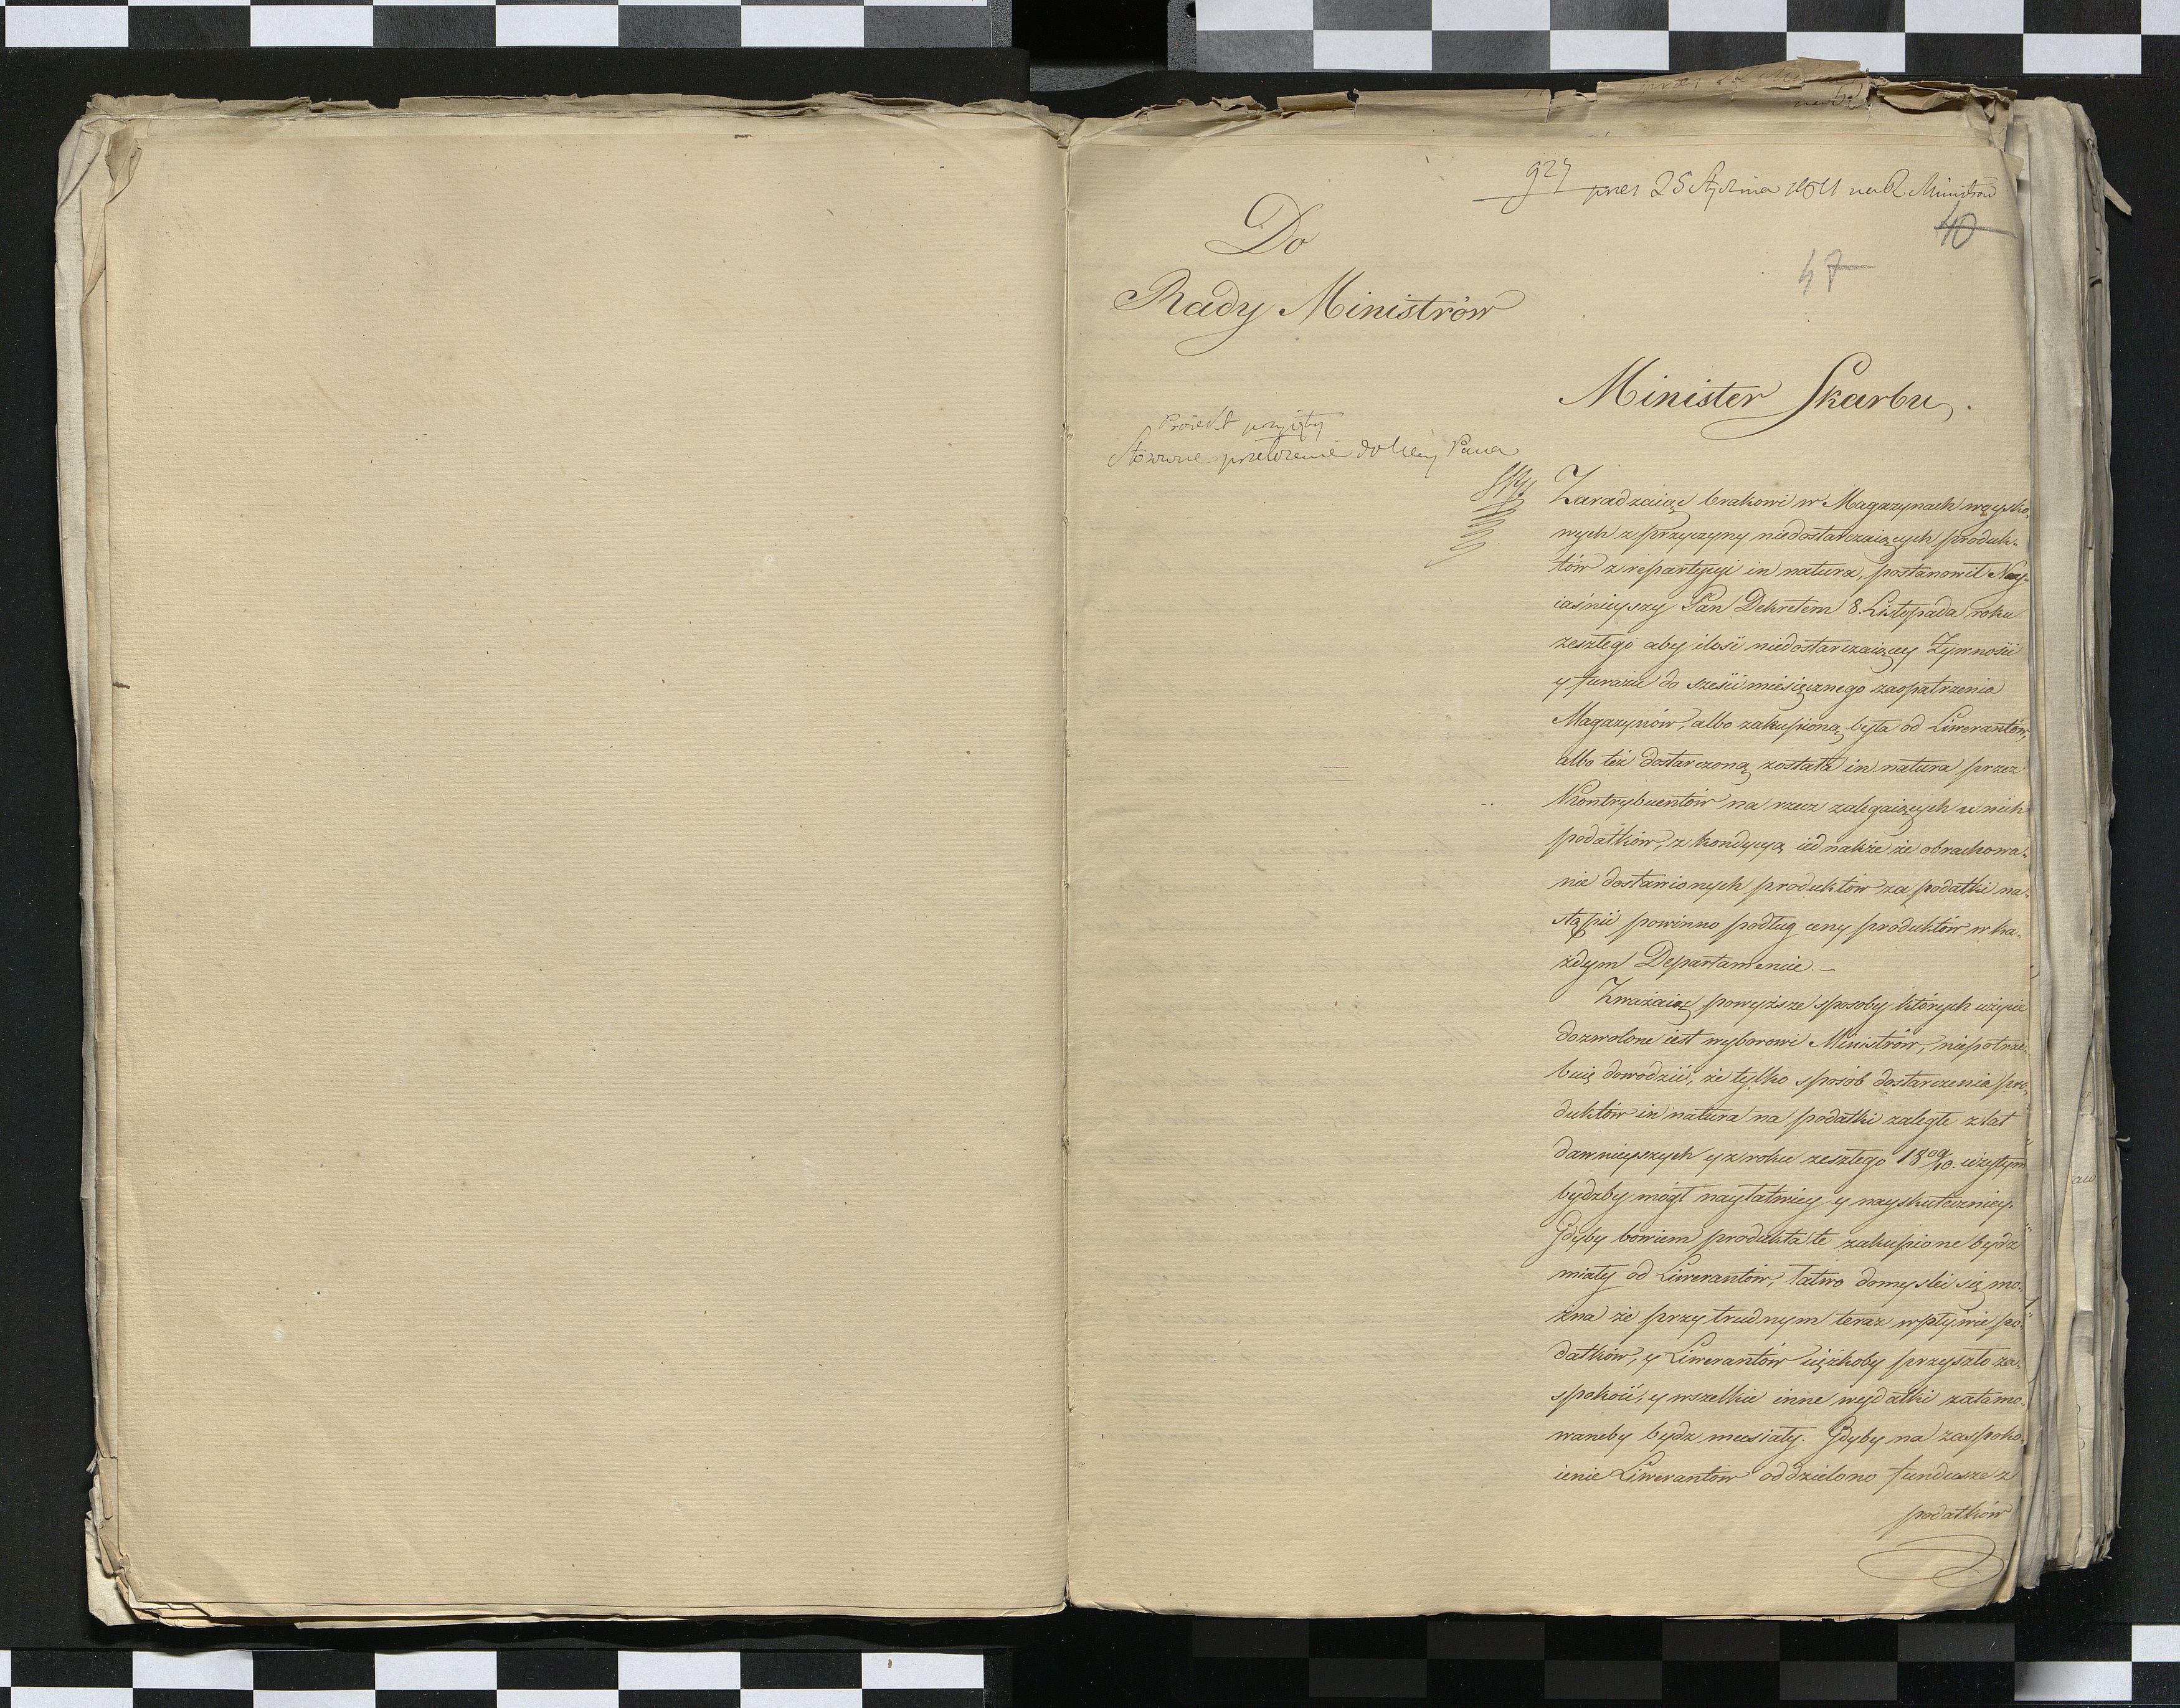 927 pres 25 Stycznia 1811 na R Ministrów
40
47
Do
Rady Ministrów
Minister Skarbu.
Proiekt przyięty
Stosowne przełożenie do Kcey Pana
Zaradzaiąc brakowi w Magazynach woysko-
wych z przyczyny niedostarczaiących produk-
tów z repartycyi in natura, postanowił Nay-
iaśnieyszy Pan Dekretem 8. Listopada roku
zeszłego aby ilość niedostarczaiącey Żywności
y furażu do sześci miesięcznego zaopatrzenia
Magazynów, albo zakupioną była od Liwerantów,
albo też dostarczoną została in natura przez
Kontrybuentów na rzecz zalegaiących u nich
podatków, z kondycyą iednakże że obrachowa-
nie dostawionych produktów za podatki na-
stąpić powinno podług ceny produktów w ka-
żdym Departamencie. —
Zważaiąc powyższe sposoby których użycie
dozwolone iest wyborowi Ministrów, niepotrze-
buię dowodzić, że tylko sposób dostarczenia pro-
duktów in natura na podatki zaległe z lat
dawnieyszych y z roku zeszłego 1809/10. użytym
bydźby mógł nayłatwiey y nayskuteczniey.
Gdyby bowiem produkta te zakupione bydź
miały od Liwerantów, łatwo domyśleć się mo-
żna że przy trudnym teraz wpływie po-
datków, y Liwerantów ciężkoby przyszło za-
spokoić, y wszelkie inne wydatki zatamo-
waneby bydź musiały. Gdyby na zaspoko-
ienie Liwerantów oddzielono fundusze z
podatków